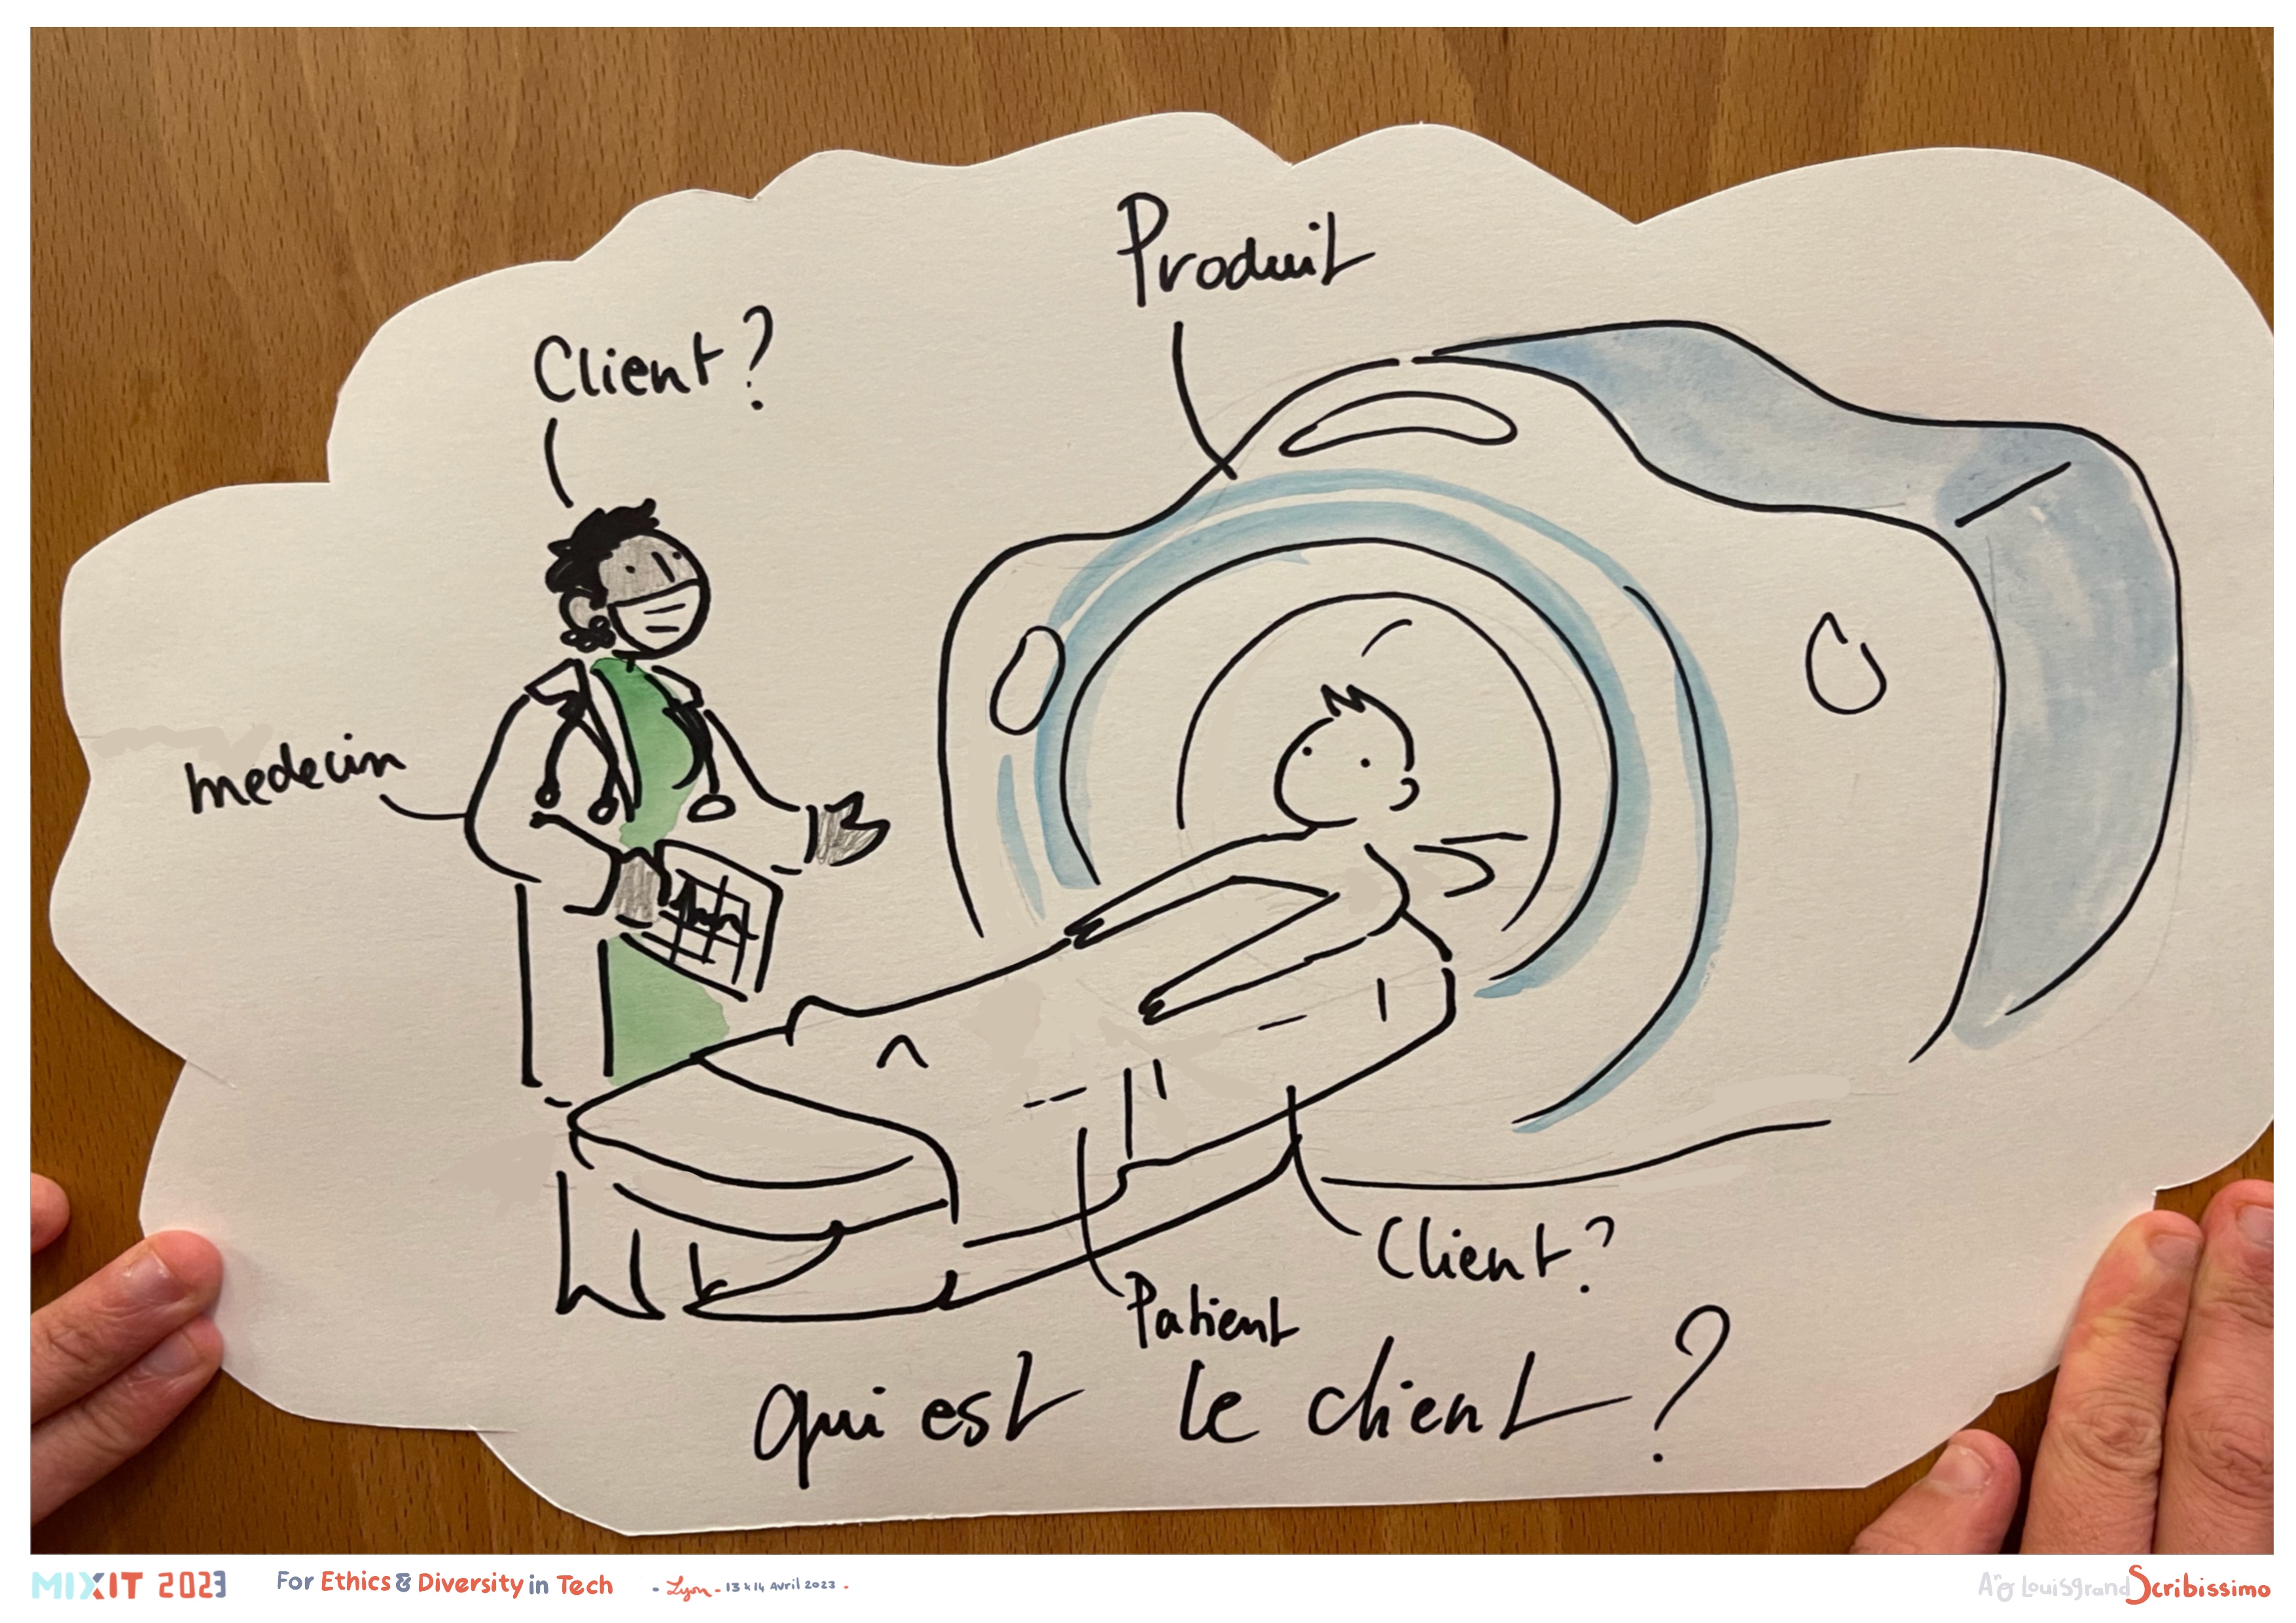 Produit
Client?
medecin
Client?
Patient
qui est le client?
MIXIT 2023 For Ethics & Diversity in Tech - Lyon - 13 & 14 Avril 2023 -
Louisgrand Scribissimo